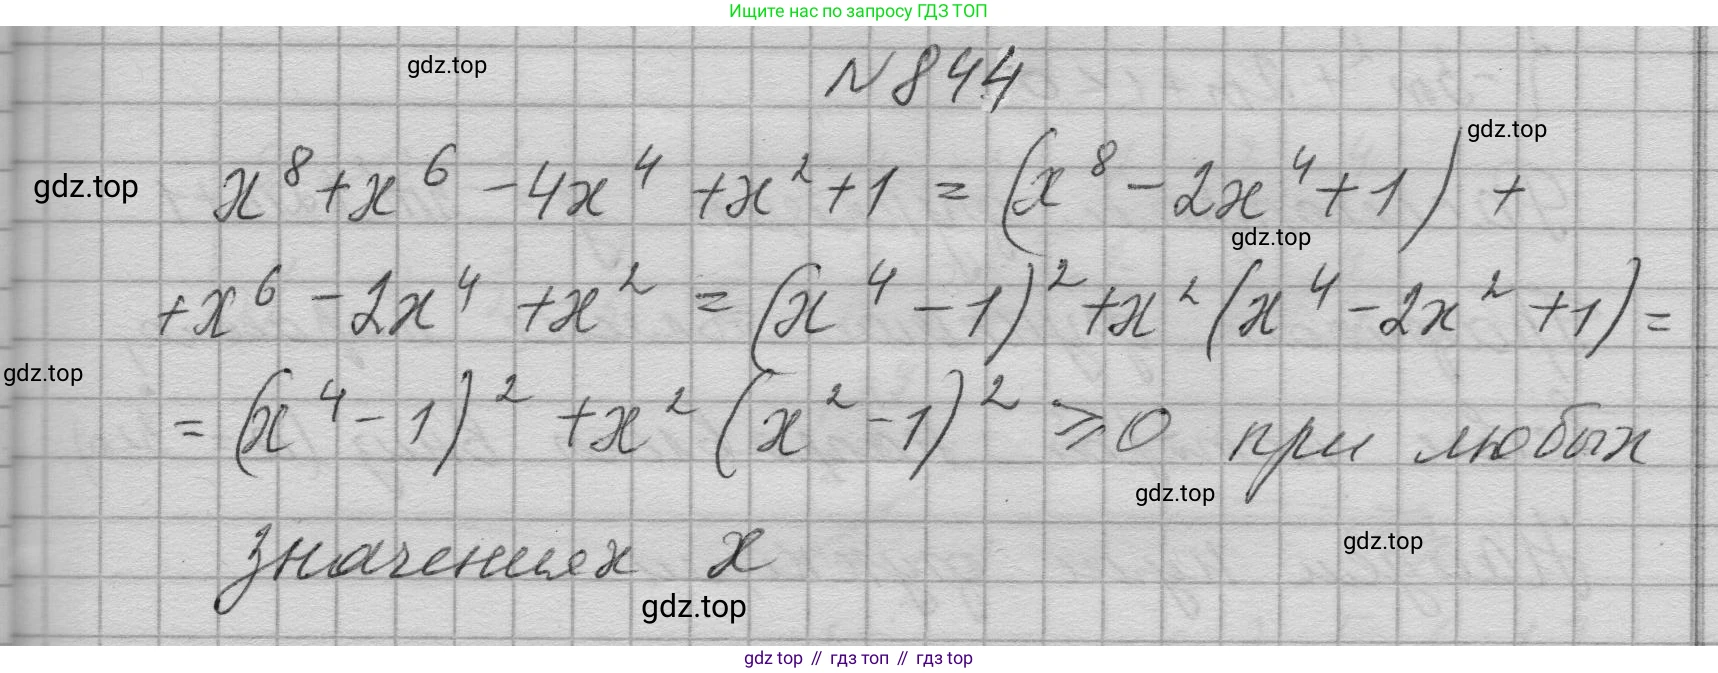 Ищите нас по запросу ГДЗ ТОП
gdz.top
N 844
gdz.top
gdz.top
x⁸ + x⁶ - 4x⁴ + x² + 1 = (x⁸ - 2x⁴ + 1) +
gdz.top
+ x⁶ - 2x⁴ + x² = (x⁴ - 1)² + x² (x⁴ - 2x² + 1) =
gdz.top
= (x⁴ - 1)² + x² (x² - 1)² ⩾ 0 при любых
gdz.top
значениях x
gdz.top
gdz.top
gdz top // гдз топ // gdz top